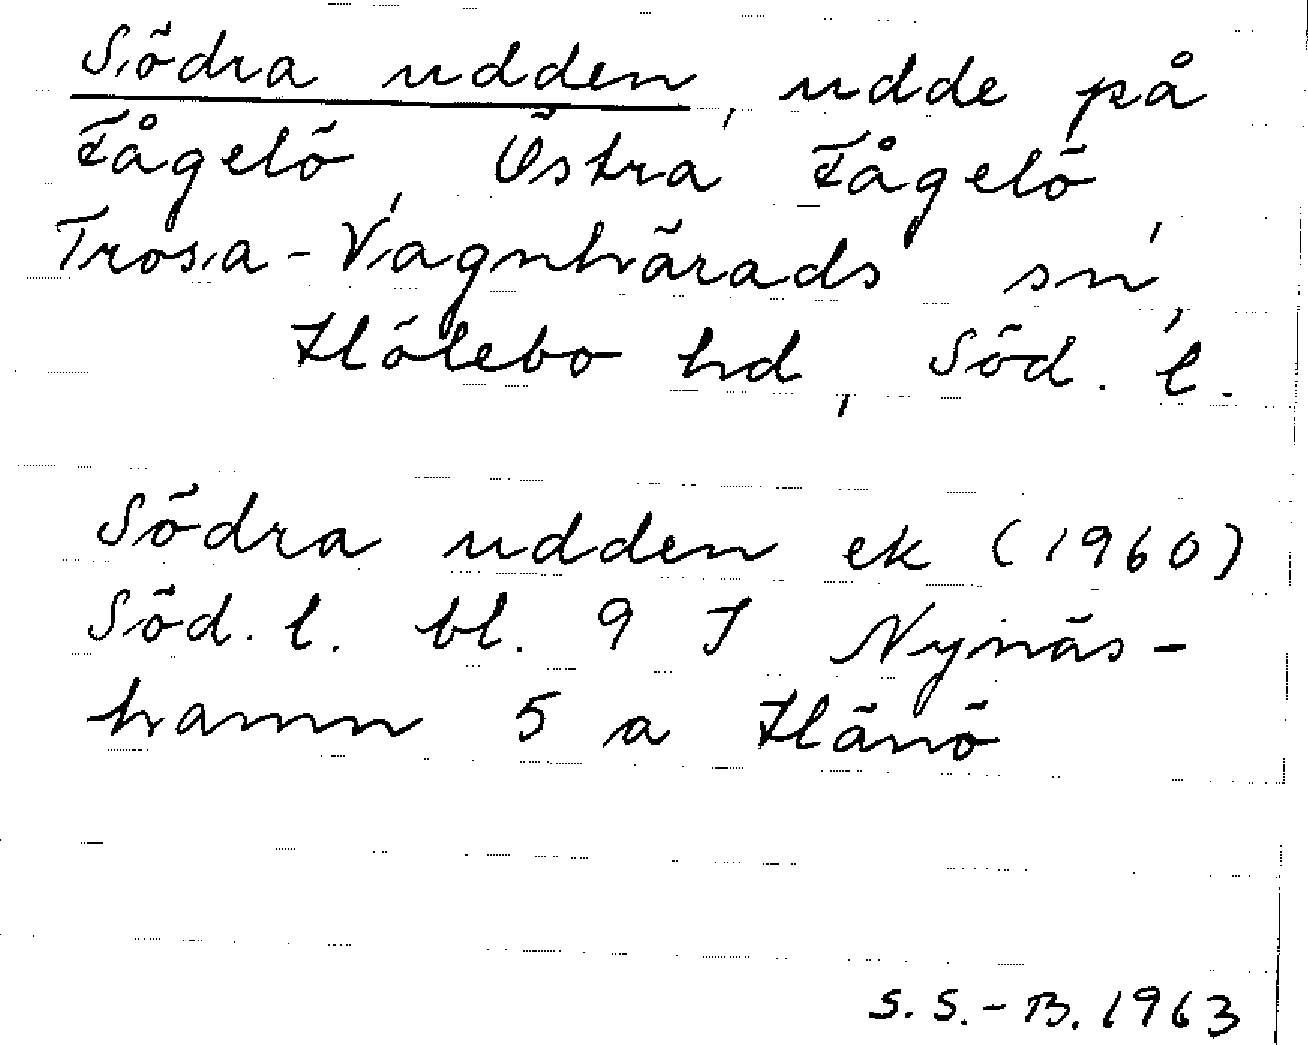 Södra udden, udde på
Fågelö, Östra Fågelö,
Trosa-Vagnhärads sn,
Hölebo hd, Söd. l.
Södra udden ek (1960)
Söd. l. bl. 9 J Nynäs-
hamn 5 a Hänö
S. S.-B. 1963